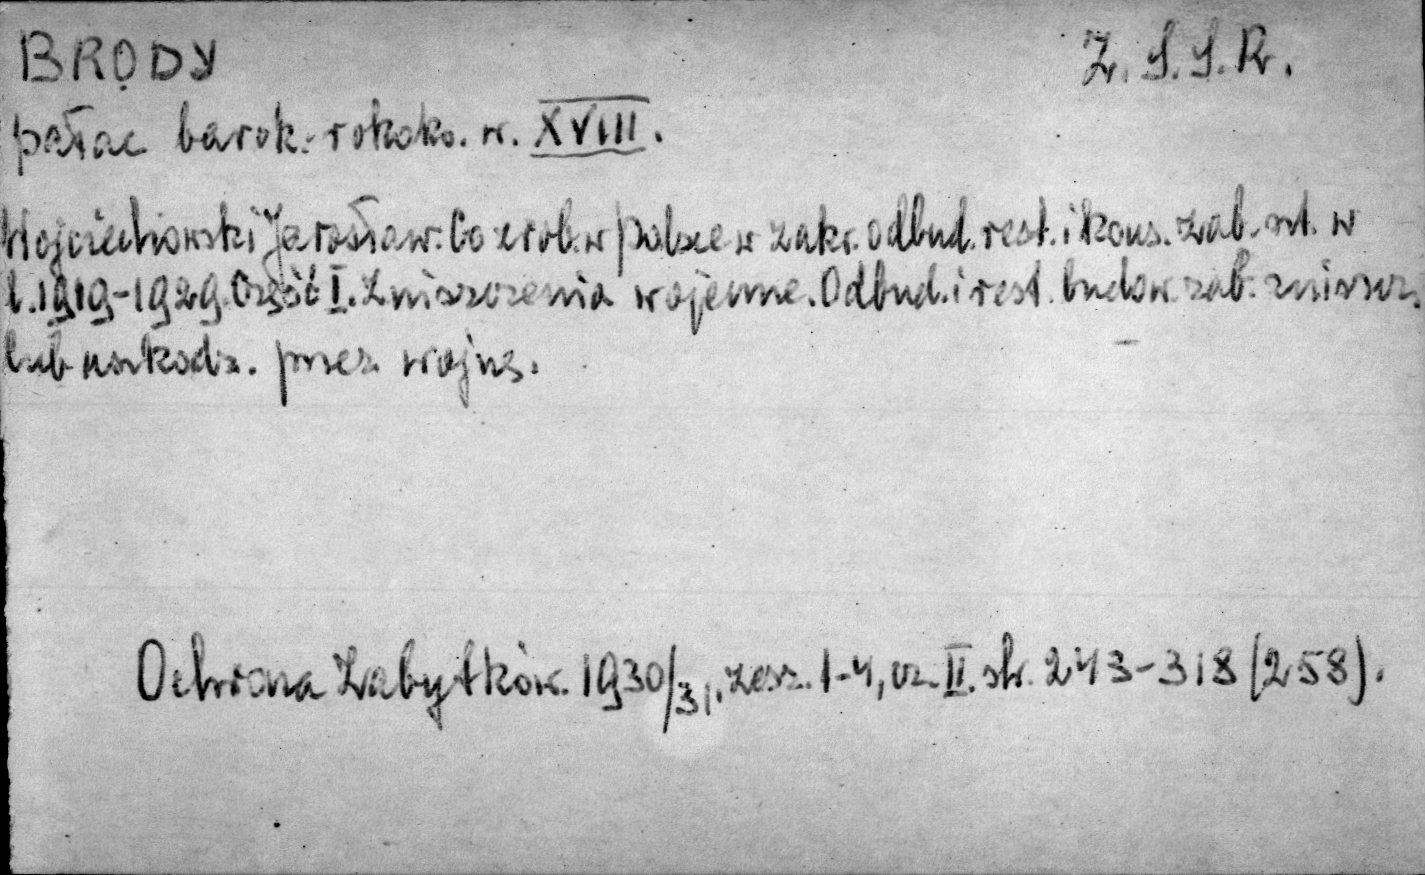 BRODY Z.S.S.R.
pałac barok.-rokoko. w. XVIII.
Wojciechowski Jarosław. Co zrob. w Polsce w zakr. odbud. rest. i kons. zab. szt. w
l. 1919-1929. Część I. Zniszczenia wojenne. Odbud. i rest. budow. zab. zniszcz.
lub uszkodz. przez wojnę.
Ochrona Zabytków. 1930/31, zesz. 1-4, cz. II. str. 243-318 (258).